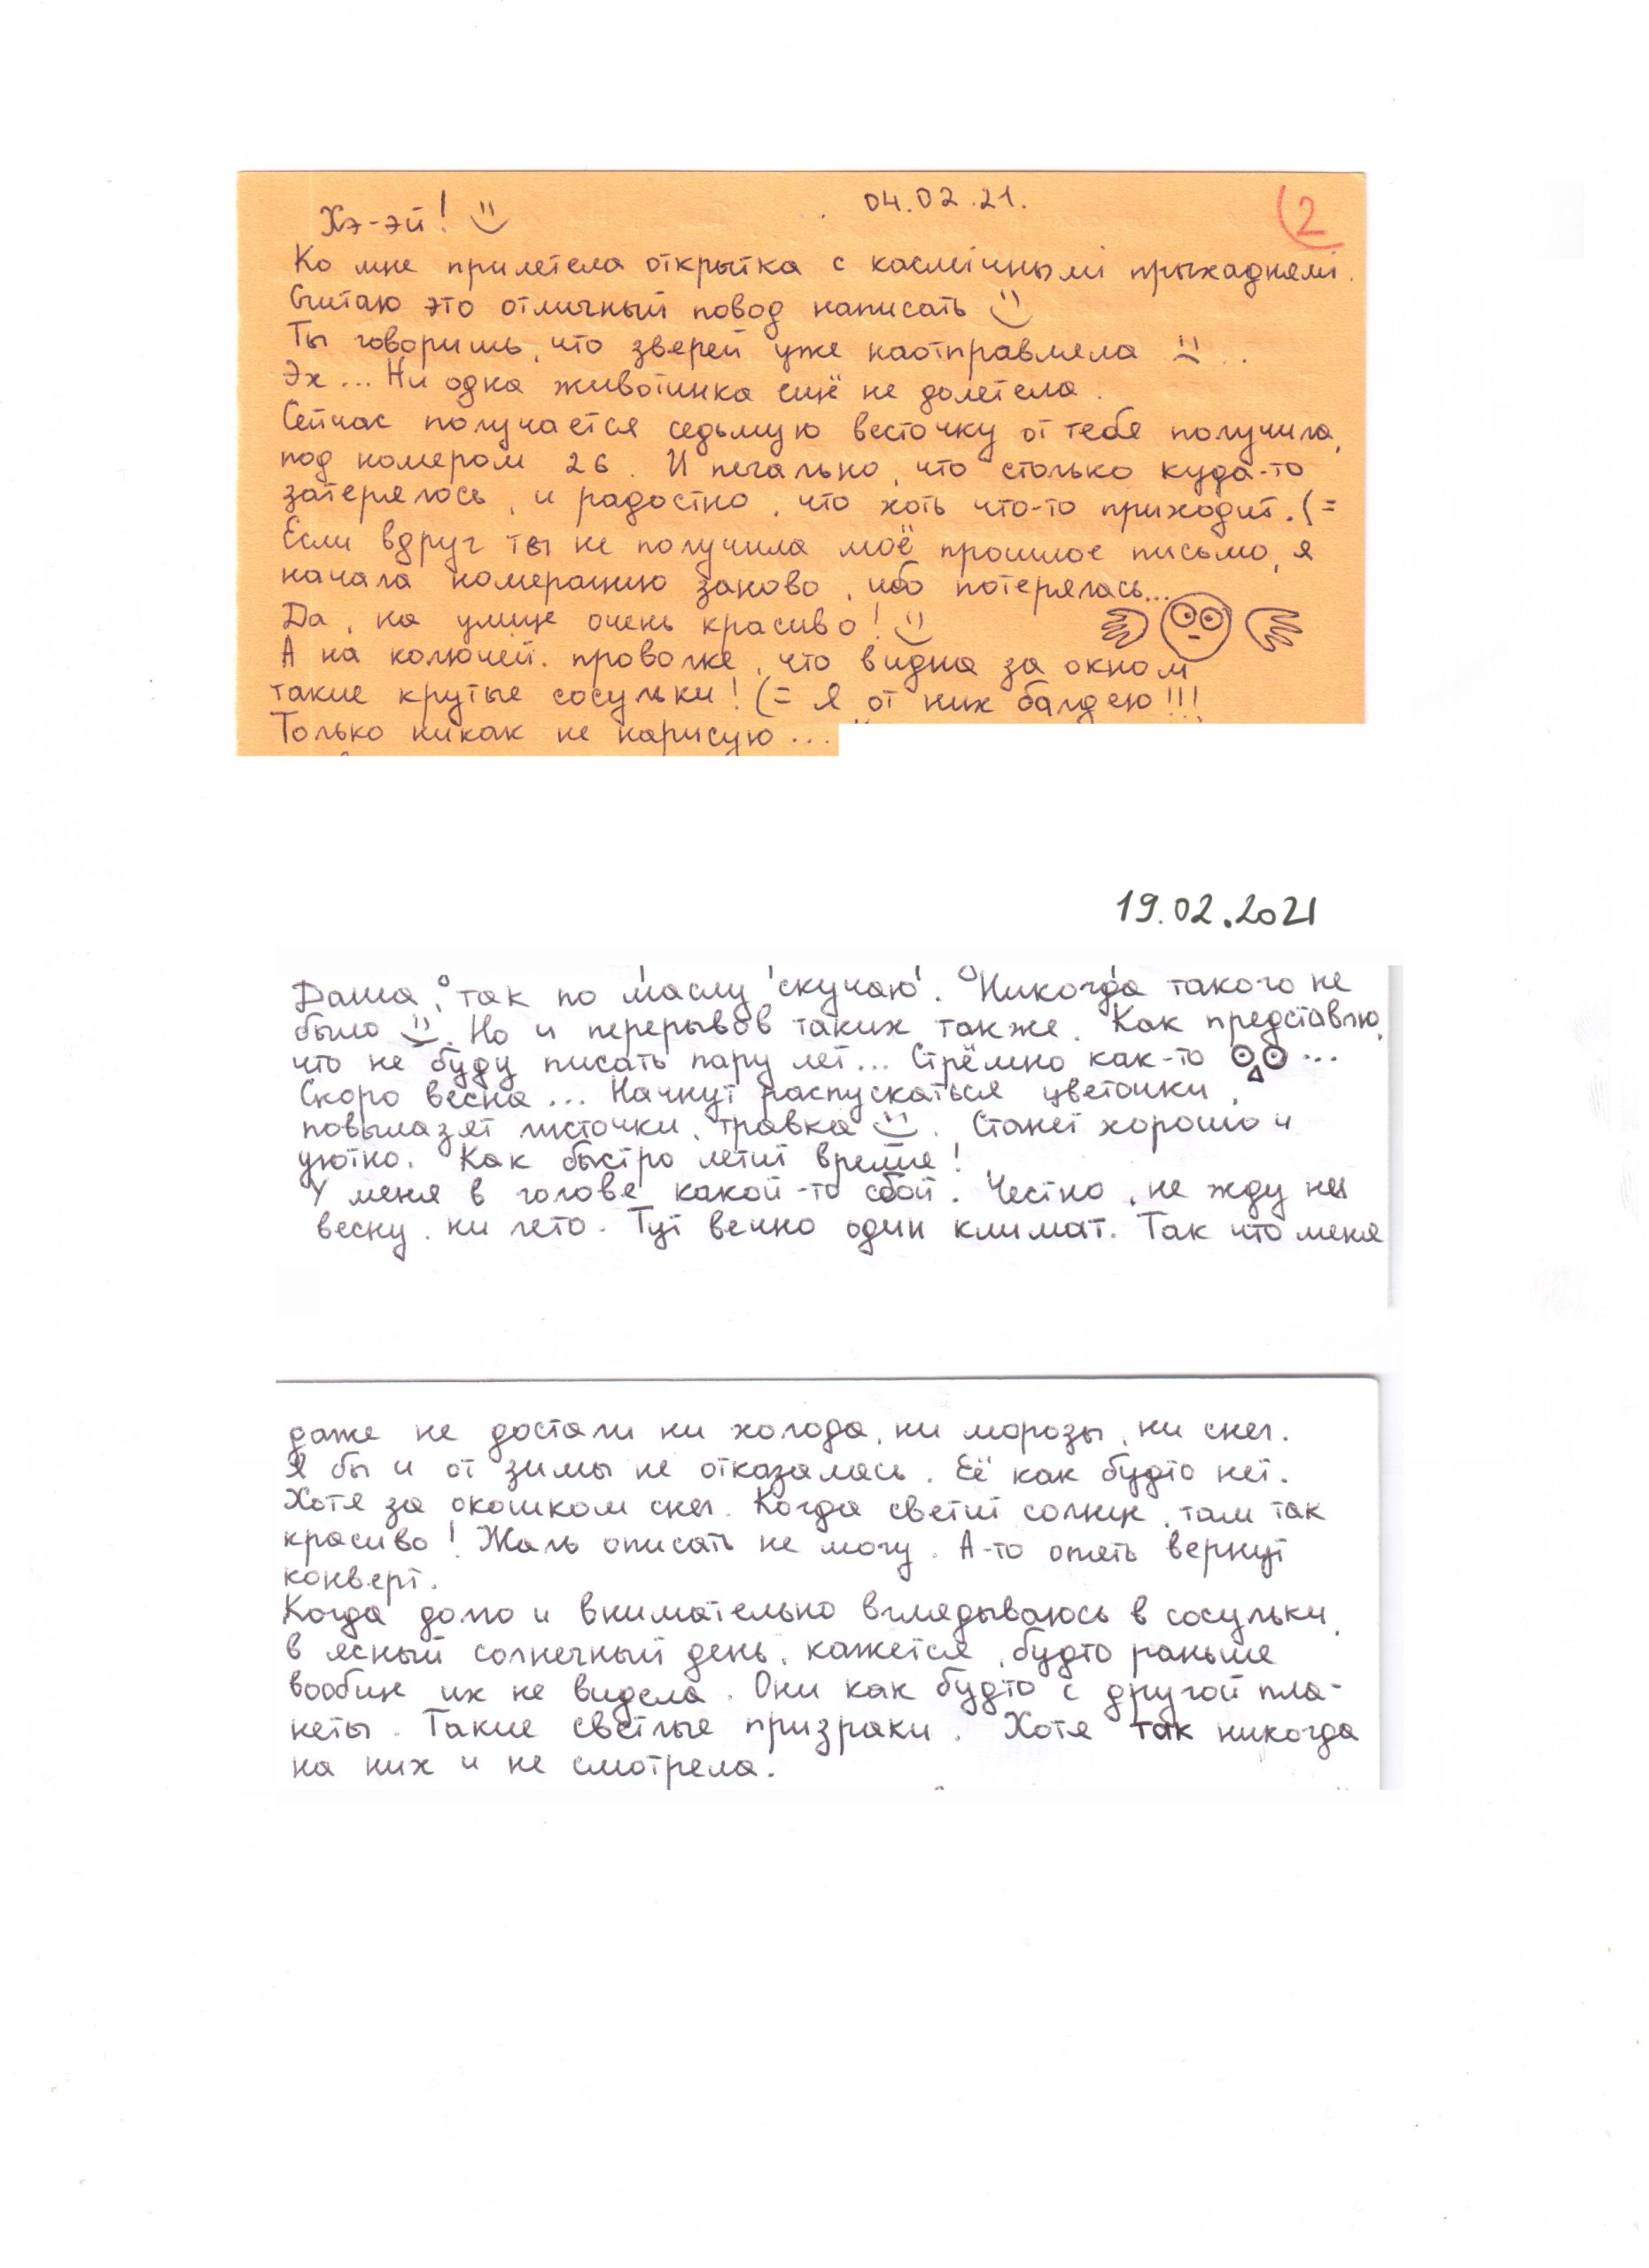 04.02.21.
2
Хэ-эй!
Ко мне прилетела открытка с касмічнымі прыхаднямі.
Считаю это отличный повод написать
Ты говоришь, что зверей уже наотправляла ..
Эх... Ни одна животинка ещё не долетела.
Сейчас получается седьмую весточку от тебя получила,
под номером 26. И печально, что столько куда-то
затерялось, и радостно, что хоть что-то приходит. (=
Если вдруг ты не получила моё прошлое письмо, я
начала нумерацию заново, ибо потерялась...
Да, на улице очень красиво!
А на колючей. проволке, что видна за окном
такие крутые сосульки! (= Я от них балдею!!!
Только никак не нарисую...
19.02.2021
Даша, так по маслу скучаю. Никогда такого не
было. Но и перерывов таких также. Как представлю,
что не буду писать пару лет... Стрёмно как-то ...
Скоро весна... Начнут распускаться цветочки,
повылазят листочки, травка. Станет хорошо и
уютно. Как быстро летит время!
У меня в голове какой-то сбой. Честно, не жду ни
весну, ни лето. Тут вечно один климат. Так что меня
даже не достали ни холода, ни морозы, ни снег.
Я бы и от зимы не отказалась. Её как будто нет.
Хотя за окошком снег. Когда светит солнце, там так
красиво! Жаль описать не могу. А-то опять вернут
конверт.
Когда долго и внимательно вглядываюсь в сосульки,
в ясный солнечный день, кажется, будто раньше
вообще их не видела. Они как будто с другой пла-
неты. Такие светлые призраки. Хотя так никогда
на них и не смотрела.